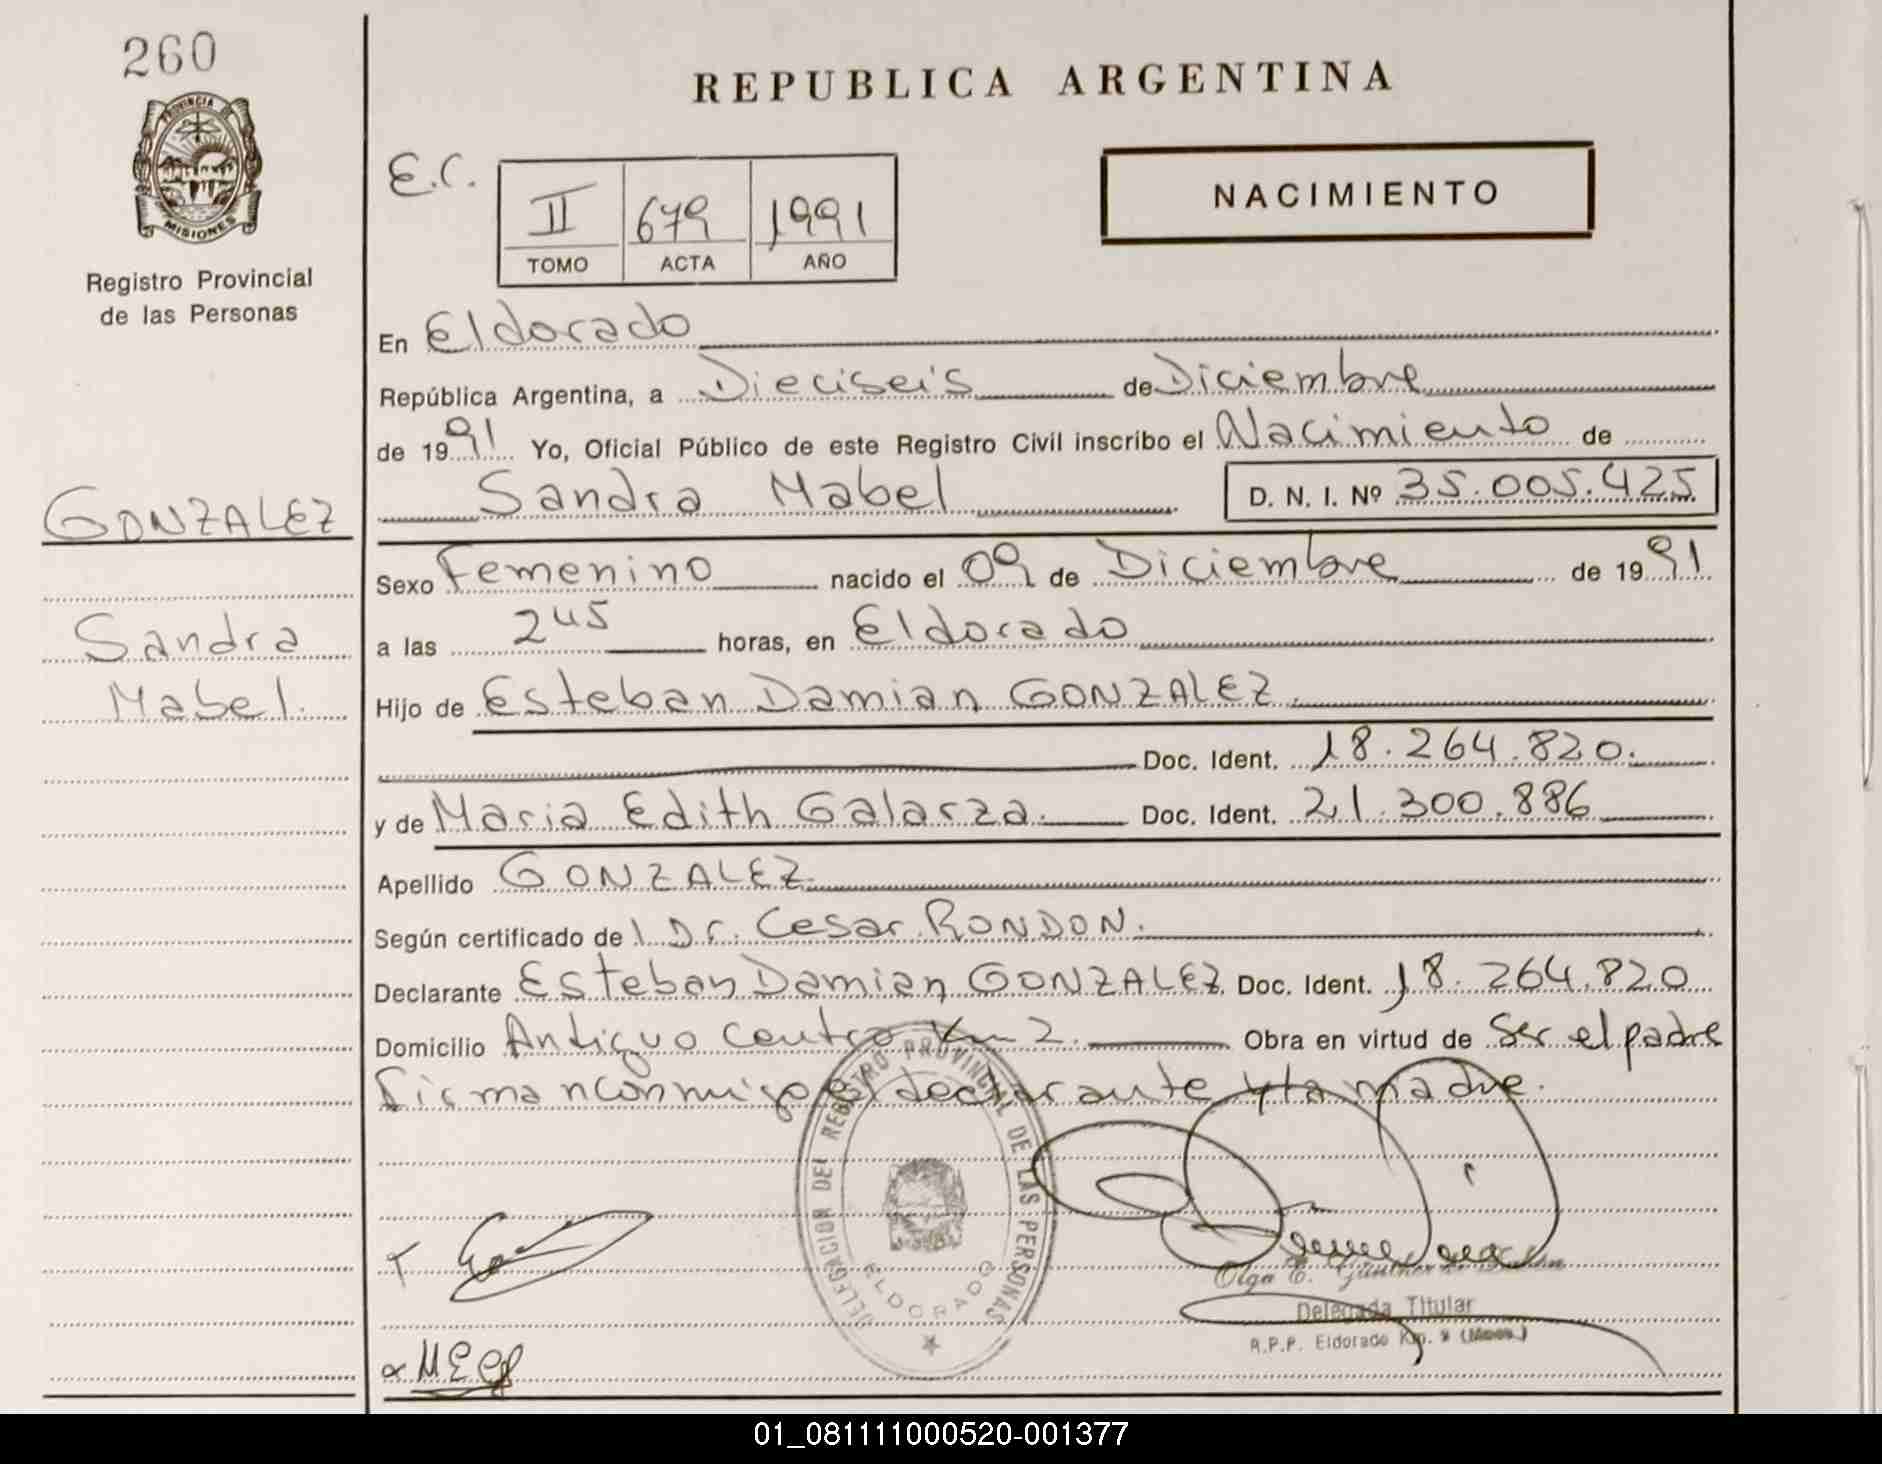 260
PROVINCIA DE
MISIONES
Registro Provincial
de las Personas
GONZALEZ
Sandra
Mabel.
REPUBLICA ARGENTINA
E.C.
II 679 1991
TOMO ACTA AÑO
NACIMIENTO
En Eldorado
República Argentina, a Dieciseis de Diciembre
de 1991 Yo, Oficial Público de este Registro Civil inscribo el Nacimiento de
Sandra Mabel D. N. I. Nº 35.005.425
Sexo Femenino nacido el 09 de Diciembre de 1991
a las 245 horas, en Eldorado
Hijo de Esteban Damian GONZALEZ.
Doc. Ident. 18.264.820.
y de Maria Edith Galarza. Doc. Ident. 21.300.886
Apellido GONZALEZ.
Según certificado de l Dr. Cesar RONDON.
Declarante Esteban Damian GONZALEZ Doc. Ident. 18.264.820
Domicilio Antiguo Centro Km 2. Obra en virtud de Ser el padre
Firman conmigo el declarante y la madre.
DELEGACION DEL REGISTRO PROVINCIAL DE LAS PERSONAS
ELDORADO
Olga E. Günther de
Delegada Titular
R.P.P. Eldorado Km.
MEG
01_081111000520-001377